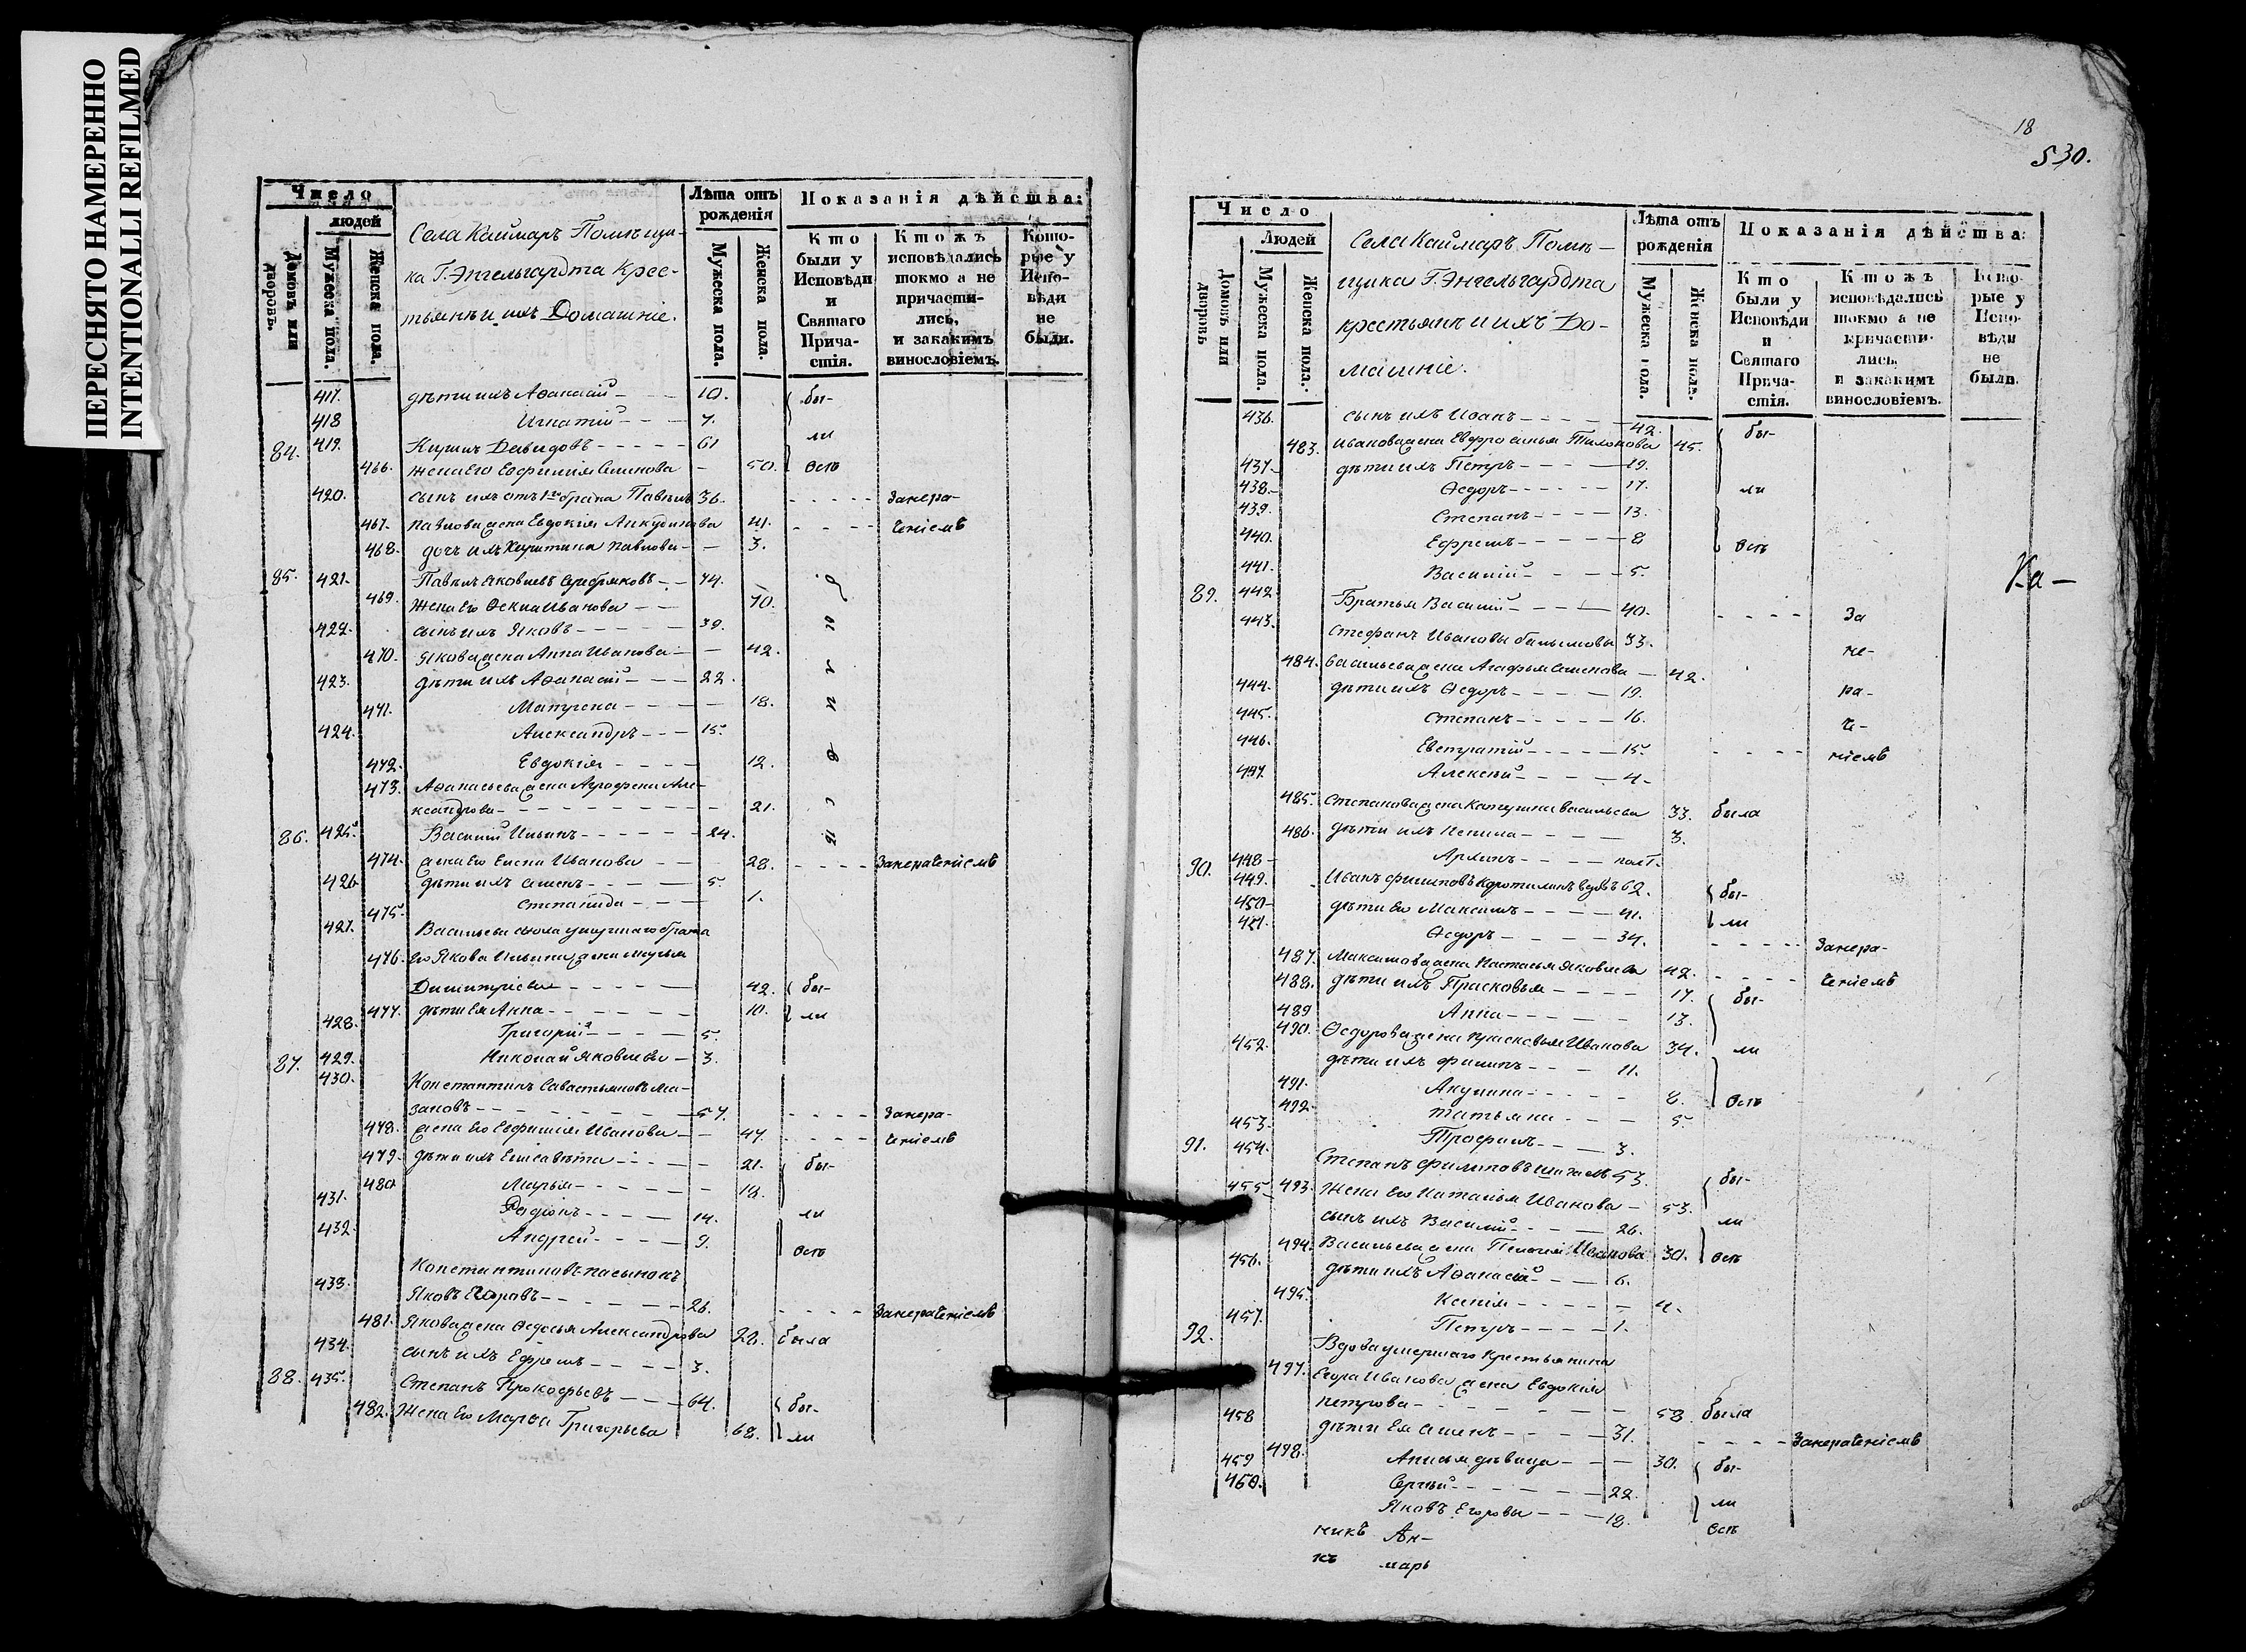 ПЕРЕСНЯТО НАМЕРЕННО
INTENTIONALLI REFILMED
Число
людей
Домовъ или дворовъ.
Мужеска пола.
Женска пола.
Села Каймаръ Помѣщи-
ка Г. Энгельгардта Крес-
тьянѣ и ихъ Домашніе.
Лѣта отъ рожденія
Мужеска пола.
Женска пола.
Показанія дѣйства:
Кто были у Исповѣди и Святаго Прича-стія.
Ктожъ исповѣдались токмо а не причасти-лись, и закакимъ винословіемъ.
Кото-рые у Испо-вѣди не были.
417. дѣти ихъ Аѳанасій 10. бы-
418 Игнатій 7.
84. 419. Давидовъ 61 ли
466. жена Его Евфимія Семенова 50. всѣ
420. сынъ ихъ отъ 1го брака Павелъ 36. Занера-
467. Павлова жена Евдокія Анкудинова 41. ченіемъ
468. дочь ихъ Павлова 3.
85. 421. Павелъ Яковлевъ Серебряковъ 74.
469. Жена Его Ѳекла Иванова 70.
422. сынъ ихъ Яковъ 39.
470. Якова жена Анна Иванова 42.
423. дѣти ихъ Аѳанасій 22.
471. Матрена 18.
424. Александръ 15.
472. Евдокія 12.
473. Аѳанасьева жена Агрофена Але-
ксандрова 21.
86. 425. Василій Ильинъ 24.
474. жена Его Елена Иванова 28. Занераченіемъ
426 дѣти ихъ Семенъ 5.
475. Степанида 1.
427. Васильева умершаго брата
476. Его Якова Ильина жена Марья
Димитріева 42. бы-
477. дѣти Ея Анна 10. ли
428. Григорій 5.
87. 429. Николай Яковлевы 3.
430. Константинъ Савастьяновъ Ма-
заковъ 57. Занера-
478. жена Его Евфимія Иванова 47. ченіемъ
479. дѣти ихъ Елисавѣта 21. бы-
480 Марья 18.
431. Радіонъ 14. ли
432. Андрей 9. всѣ
Константиновъ пасынокъ
433. Яковъ Егоровъ 26. Занераченіемъ
481. Якова жена Ѳедосья Александрова 28. была
434. сынъ ихъ Ефремъ 3.
88. 435. Степанъ Прокофьевъ 64. бы-
482. Жена Его Марѳа Григорьева 68. ли
18
530.
Число
Людей
Домовъ или дворовъ
Мужеска пола.
Женска пола.
Села Каймаръ Помѣ-
щика Г. Энгельгардта
крестьянѣ и ихъ До-
машніе.
Лѣта отъ рожденія
Мужеска пола.
Женска пола.
Показанія дѣйства:
Кто были у Исповѣди и Святаго Прича-стія.
Ктожъ исповѣдались токмо а не причасти-лись, и закакимъ винословіемъ.
Кото-рые у Испо-вѣди не были.
436. сынъ ихъ Иванъ 42. бы-
483. Иванова жена Евфросинья Тихонова 45.
437. дѣти ихъ Петръ 19.
438. Ѳедоръ 17. ли
439. Степанъ 13.
440. Ефремъ 8 всѣ
441. Василій 5.
Ка-
89. 442 Братья Василій 40. За
443. Стефанъ Ивановы 33. не-
484. Васильева жена Агафья Семенова 42.
444. дѣти ихъ Ѳедоръ 19. ра-
445. Степанъ 16. че-
446. Евстратій 15. ніемъ
447. Алексѣй 4.
485. Степанова жена Катерина Васильева 33. была
486. дѣти ихъ 3.
448 пол Г.
90. 449. Иванъ Филиповъ вдовъ 62. бы-
450 дѣти Его Максимъ 41. ли
451. Ѳедоръ 34. Занера-
487. Максимова жена Настасья Яковлева 42. ченіемъ
488. дѣти ихъ Прасковья 17. бы-
489 Анна 13.
490. Ѳедорова жена Прасковья Иванова 34. ли
452. дѣти ихъ Филипъ 11.
491. Акулина 8. всѣ
492. Татьяна 5
453. Трофимъ 3.
91. 454. Степанъ Филиповъ 53. бы-
493. Жена Его Наталья Иванова 53. ли
455. сынъ ихъ Василій 26.
494. Васильева жена Пелагія Иванова 30. всѣ
456. дѣти ихъ Аѳанасій 6.
495. Ксенія 4.
457. Петръ 1.
92. Вдова умершаго Крестьянина
497. Егора Иванова жена Евдокія
Петрова 58 была
458 дѣти Ея Семенъ 31. Занераченіемъ
498. Анисья дѣвица 30. бы-
459 Сергѣй 22. ли
460. Яковъ Егоровы 18. всѣ
никъ Ан-
къ марь